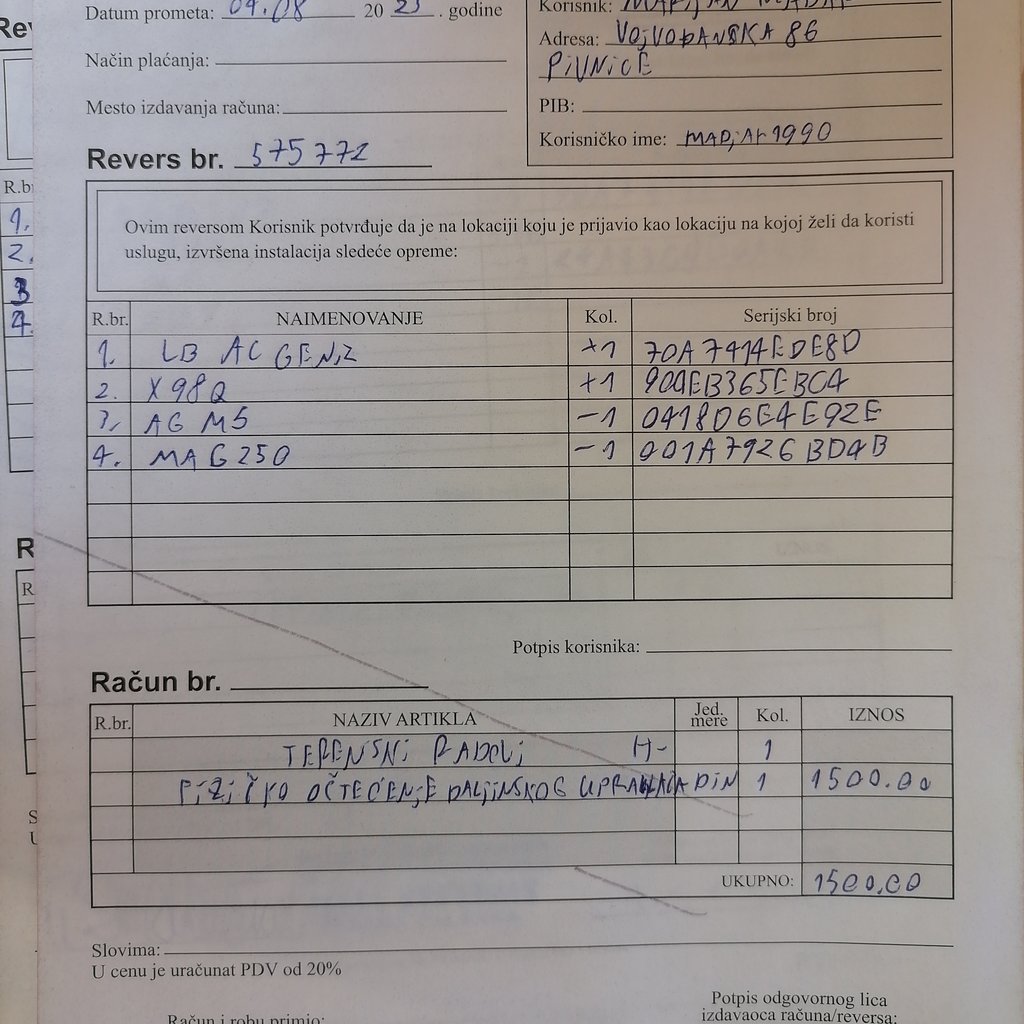 Datum prometa: 04.08 20 23 . godine
Korisnik: MARIJAN MADAR
Adresa: VOJVOĐANSKA 86
PIVNICE
Način plaćanja:
Mesto izdavanja računa:
PIB:
Korisničko ime: MADJAR1990
Revers br. 575772
Ovim reversom Korisnik potvrđuje da je na lokaciji koju je prijavio kao lokaciju na kojoj želi da koristi
uslugu, izvršena instalacija sledeće opreme:
R.br. NAIMENOVANJE Kol. Serijski broj
1. LB AC GEN2 +1 70A7414EDE8D
2. X98Q +1 904EB365EBC4
3. AG M5 -1 0418D6E4E92E
4. MAG250 -1 001A7926BD4B
Potpis korisnika:
Račun br.
R.br. NAZIV ARTIKLA Jed. mere Kol. IZNOS
TERENSKI RADOVI H- 1
FIZIČKO OČTEĆENJE DALJINSKOG UPRAVLJAČA DIN 1 1500.00
UKUPNO: 1500.00
Slovima:
U cenu je uračunat PDV od 20%
Potpis odgovornog lica
Račun i robu primio: izdavaoca računa/reversa: